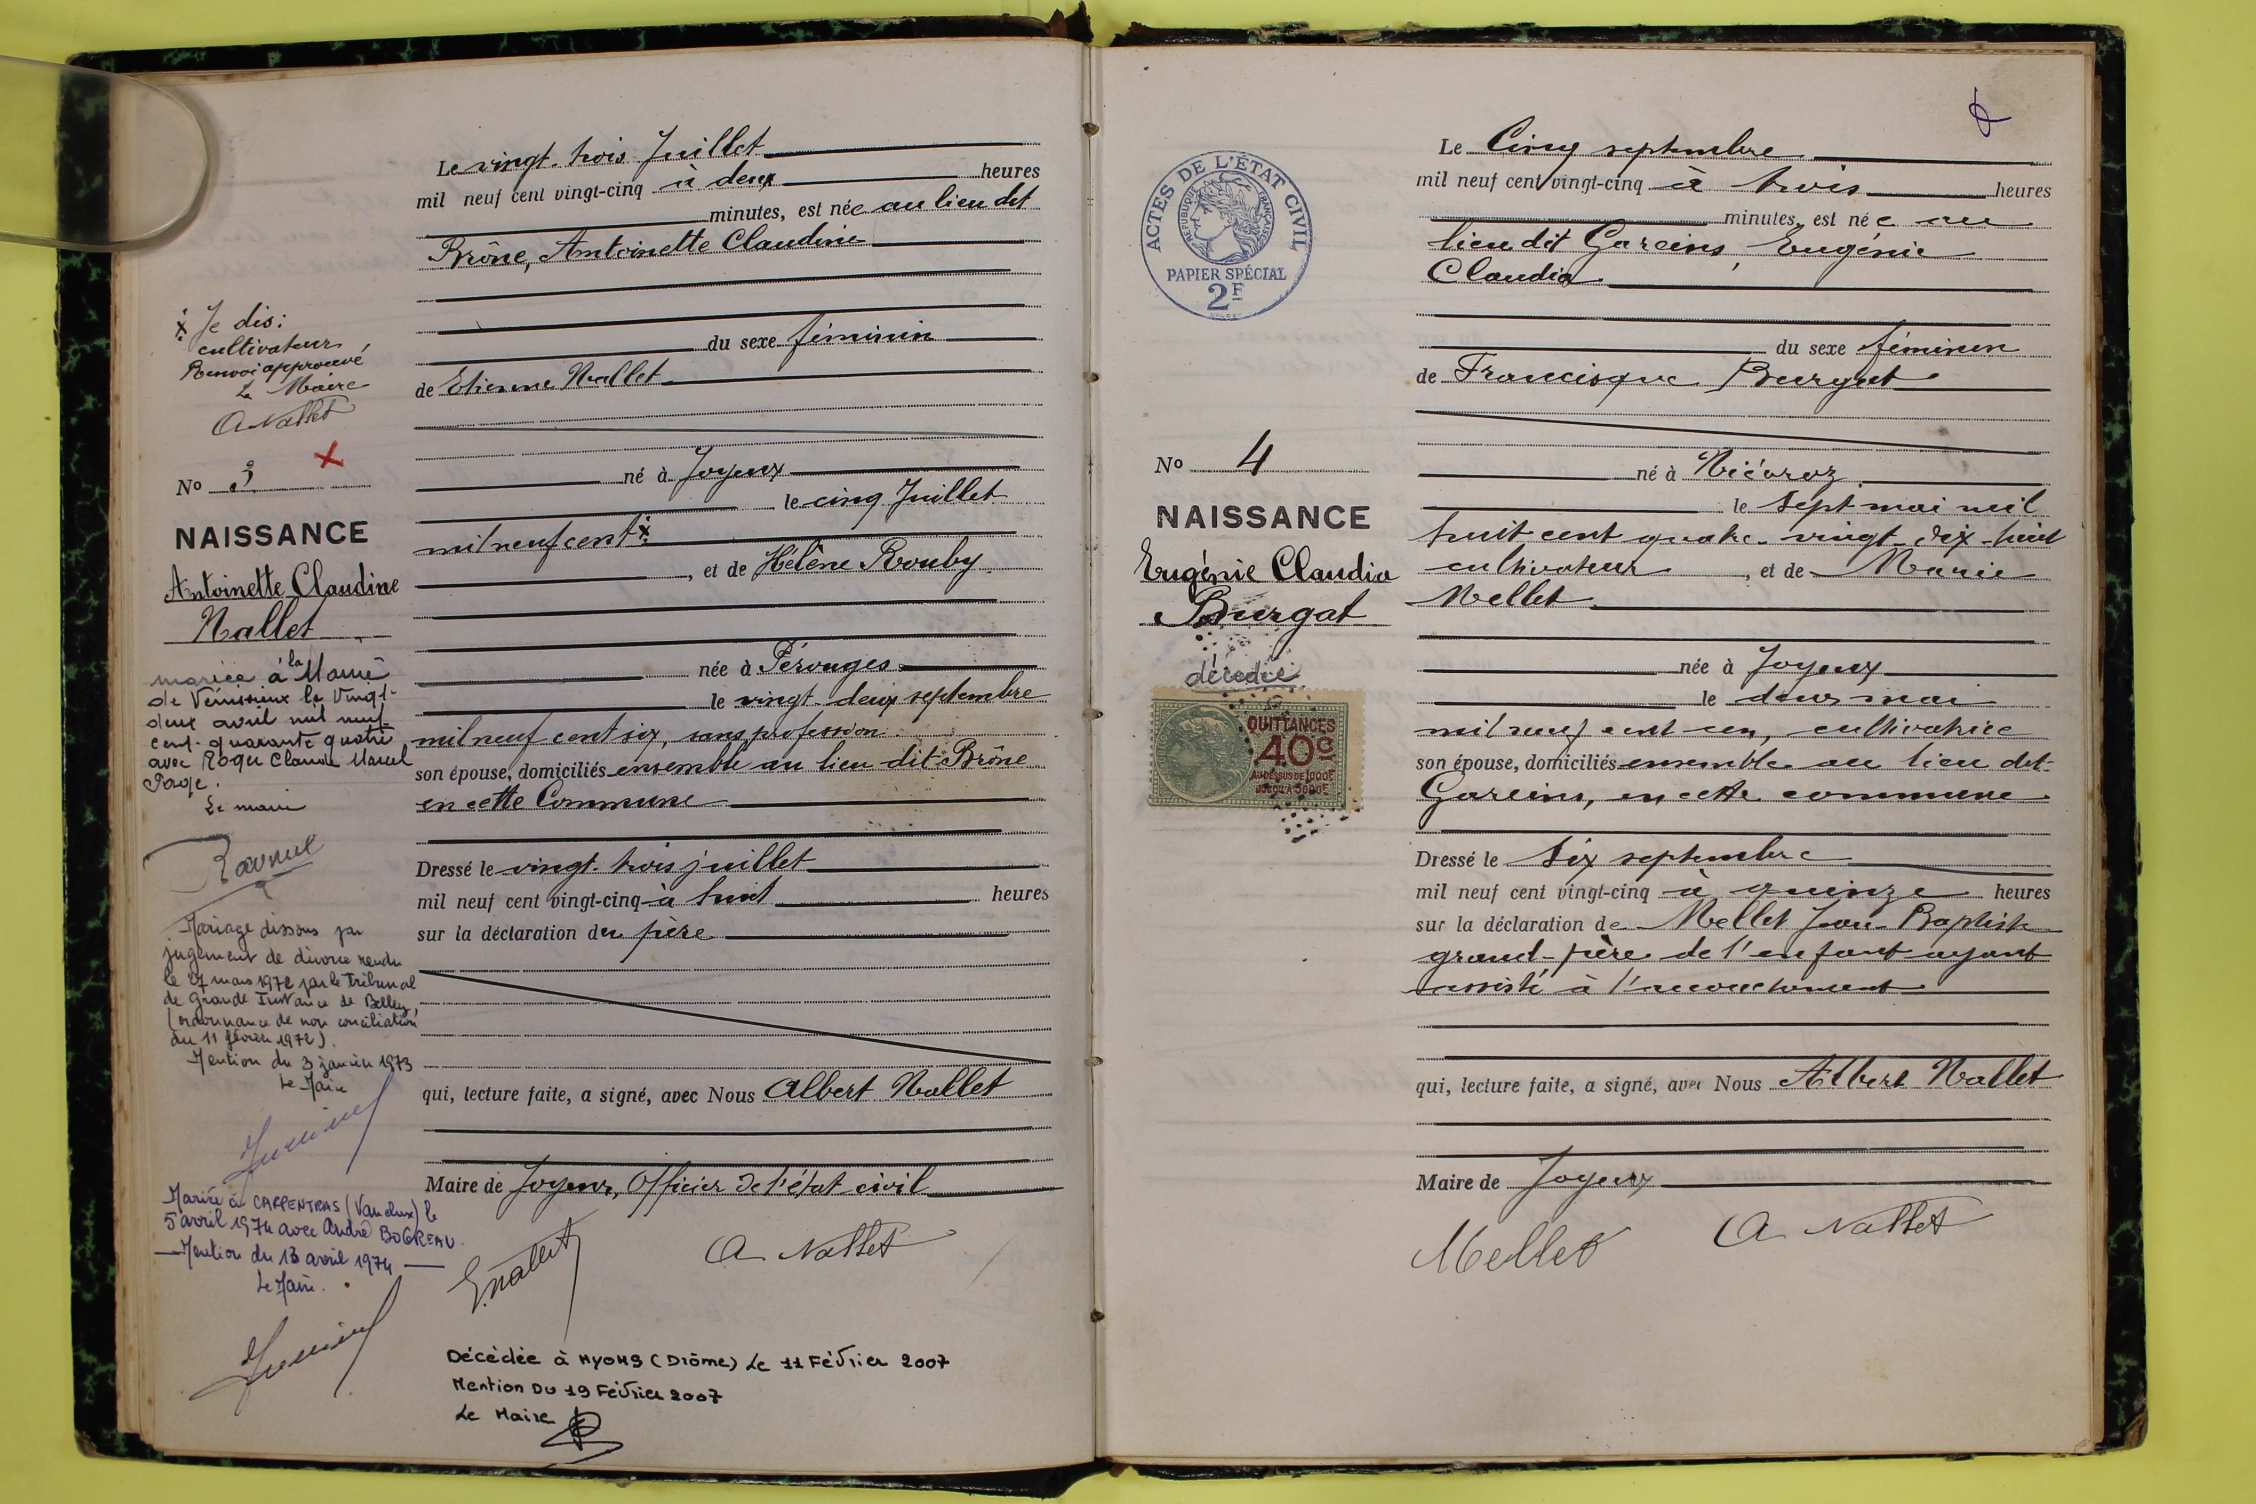 Je dis:
cultivateur
Renvoi approuvé
Le Maire
A Nallet
No 3
NAISSANCE
Antoinette Claudine
Nallet
mariée à la Mairie
de Vénissieux le Vingt-
deux avril mil neuf
cent quarante quatre
avec Roger Claude Marcel
Le maire
Mariage dissous par
jugement de divorce rendu
le 27 mars 1972 par le Tribunal
de Grande Instance de Belley
(ordonnance de non conciliation
du 11 février 1972).
Mention du 3 janvier 1973
Le Maire
Mariée à CARPENTRAS (Vaucluse) le
5 avril 1974 avec André BOGREAU.
Mention du 13 avril 1974
Le Maire.
Le vingt-trois Juillet
mil neuf cent vingt-cinq à deux heures
minutes, est née au lieu dit
Brône, Antoinette Claudine
du sexe féminin
de Etienne Nallet
né à Joyeux
le cinq Juillet
mil neuf cent
, et de Hélène Rouby
née à Pérouges
le vingt-deux septembre
mil neuf cent six, sans profession
son épouse, domiciliés ensemble au lieu dit Brône
en cette Commune
Dressé le vingt-trois juillet
mil neuf cent vingt-cinq à huit heures
sur la déclaration du père
qui, lecture faite, a signé, avec Nous Albert Nallet
Maire de Joyeux, Officier de l'état civil
E. Nallet A Nallet
Décédée à NYONS (Drôme) Le 11 Février 2007
Mention Du 19 Février 2007
Le Maire
ACTES DE L'ÉTAT CIVIL
RÉPUBLIQUE FRANÇAISE
PAPIER SPÉCIAL
2F
No 4
NAISSANCE
Eugénie Claudia
Burgat
décédée
QUITTANCES
40c
AU DESSUS DE 1000F
JUSQU'A 3000F
Le Cinq septembre
mil neuf cent vingt-cinq à trois heures
minutes, est née au
lieu dit Gareins, Eugénie
Claudia
du sexe féminin
de Francisque Burgat
né à Niévroz
le sept mai mil
huit cent quatre-vingt-dix-huit
cultivateur, et de Marie
Mellet
née à Joyeux
le deux mai
mil neuf cent un, cultivatrice
son épouse, domiciliés ensemble au lieu dit
Gareins, en cette commune
Dressé le six septembre
mil neuf cent vingt-cinq à quinze heures
sur la déclaration de Mellet Jean-Baptiste
grand-père de l'enfant ayant
assisté à l'accouchement
qui, lecture faite, a signé, avec Nous Albert Nallet
Maire de Joyeux
Mellet A Nallet